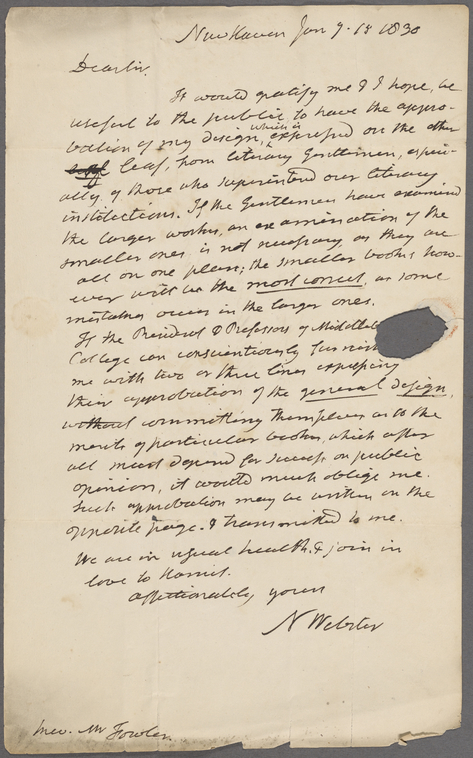 New Haven Jan 9. 1830
Dear Sir,
It would gratify me & I hope, be
useful to the public, to have the appro-
bation of my design, which is expressed on the other
leaf, from literary Gentlemen, especi-
ally, of those who superintend our literary
institutions. If the Gentlemen have examined
the larger works, an examination of the
smaller ones is not necessary, as they are
all on one plan; the smaller books how-
ever will be the most correct, as some
mistakes occur in the larger ones.
If the President & Professors of Middleb
College can conscientiously furnish
me with two or three lines expressing
their approbation of the general design,
without committing themselves as to the
merits of particular books, which after
all must depend for success on public
opinion, it would much oblige me.
Such approbation may be written on the
opposite page & transmitted to me.
We are in usual health, & join in
love to Harriet.
affectionately yours
N Webster
Mr Fowler